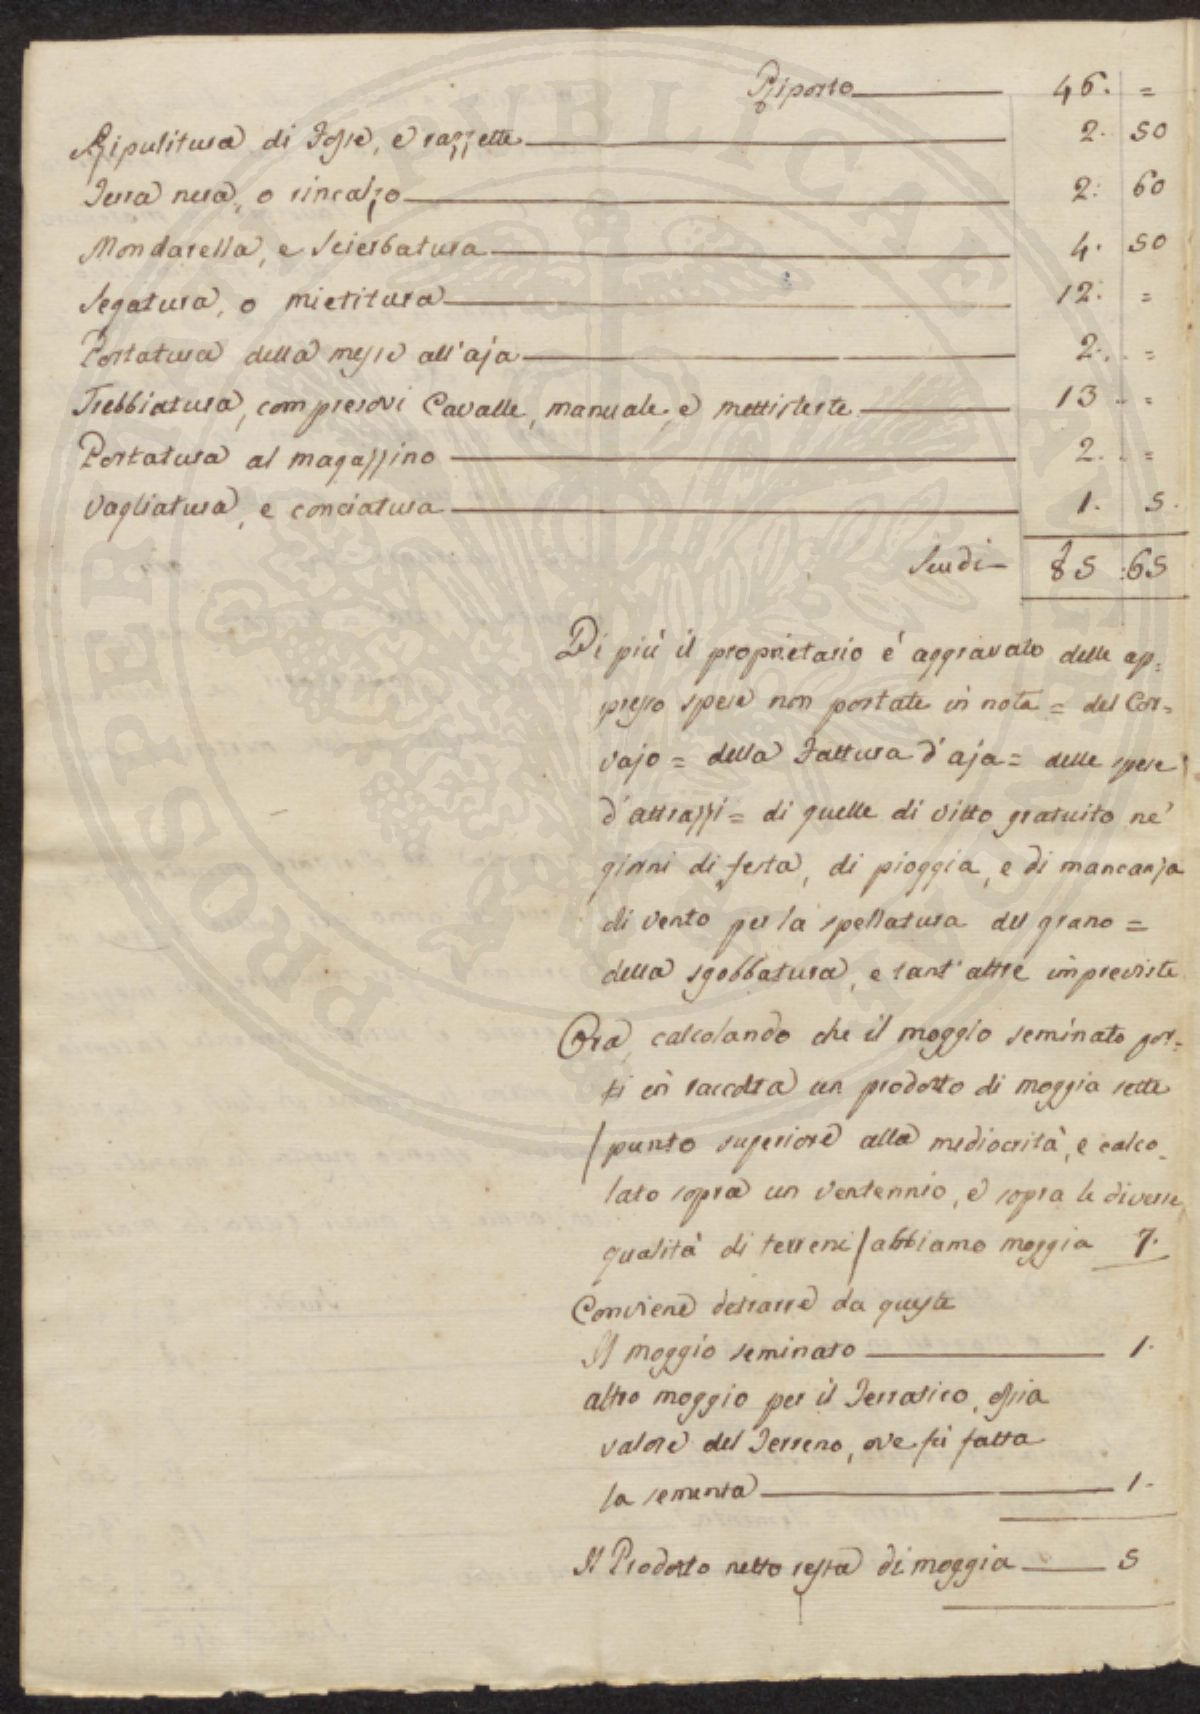 Riporto 46. =
Ripulitura di Fosse, e razzette 2. 50
Terra nera, o rincalzo 2: 60
Mondarella, e Scierbatura 4. 50
Segatura, o mietitura 12. =
Portatura della messe all'aja 2. =
Trebbiatura, compresovi Cavalle, manuale, e mettisteste 13 =
Portatura al magazzino 2. =
Vagliatura, e conciatura 1. 5.
Scudi 85 :65
Di più il proprietario é aggravato delle ap=
presso spese non portate in nota = del Cor=
vajo = della Fattura d'aja = delle spese
d'attrazzi = di quelle di vitto gratuito ne'
giorni di festa, di pioggia, e di mancanza
di vento per la spellatura del grano =
della sgobbatura, e tant'altre impreviste
Ora, calcolando che il moggio seminato por=
ti in raccolta un prodotto di moggia sette
/punto superiore alla mediocrità, e calco=
lato sopra un ventennio, e sopra le diverse
qualità di terreni/ abbiamo moggia 7.
Conviene detrarre da queste
Il moggio seminato 1.
altro moggio per il Terratico, ossia
valore del Terreno, ove fù fatta
la sementa 1.
Il Prodotto netto resta di moggia 5
PROSPERITATI PUBLICAE AUGENDAE